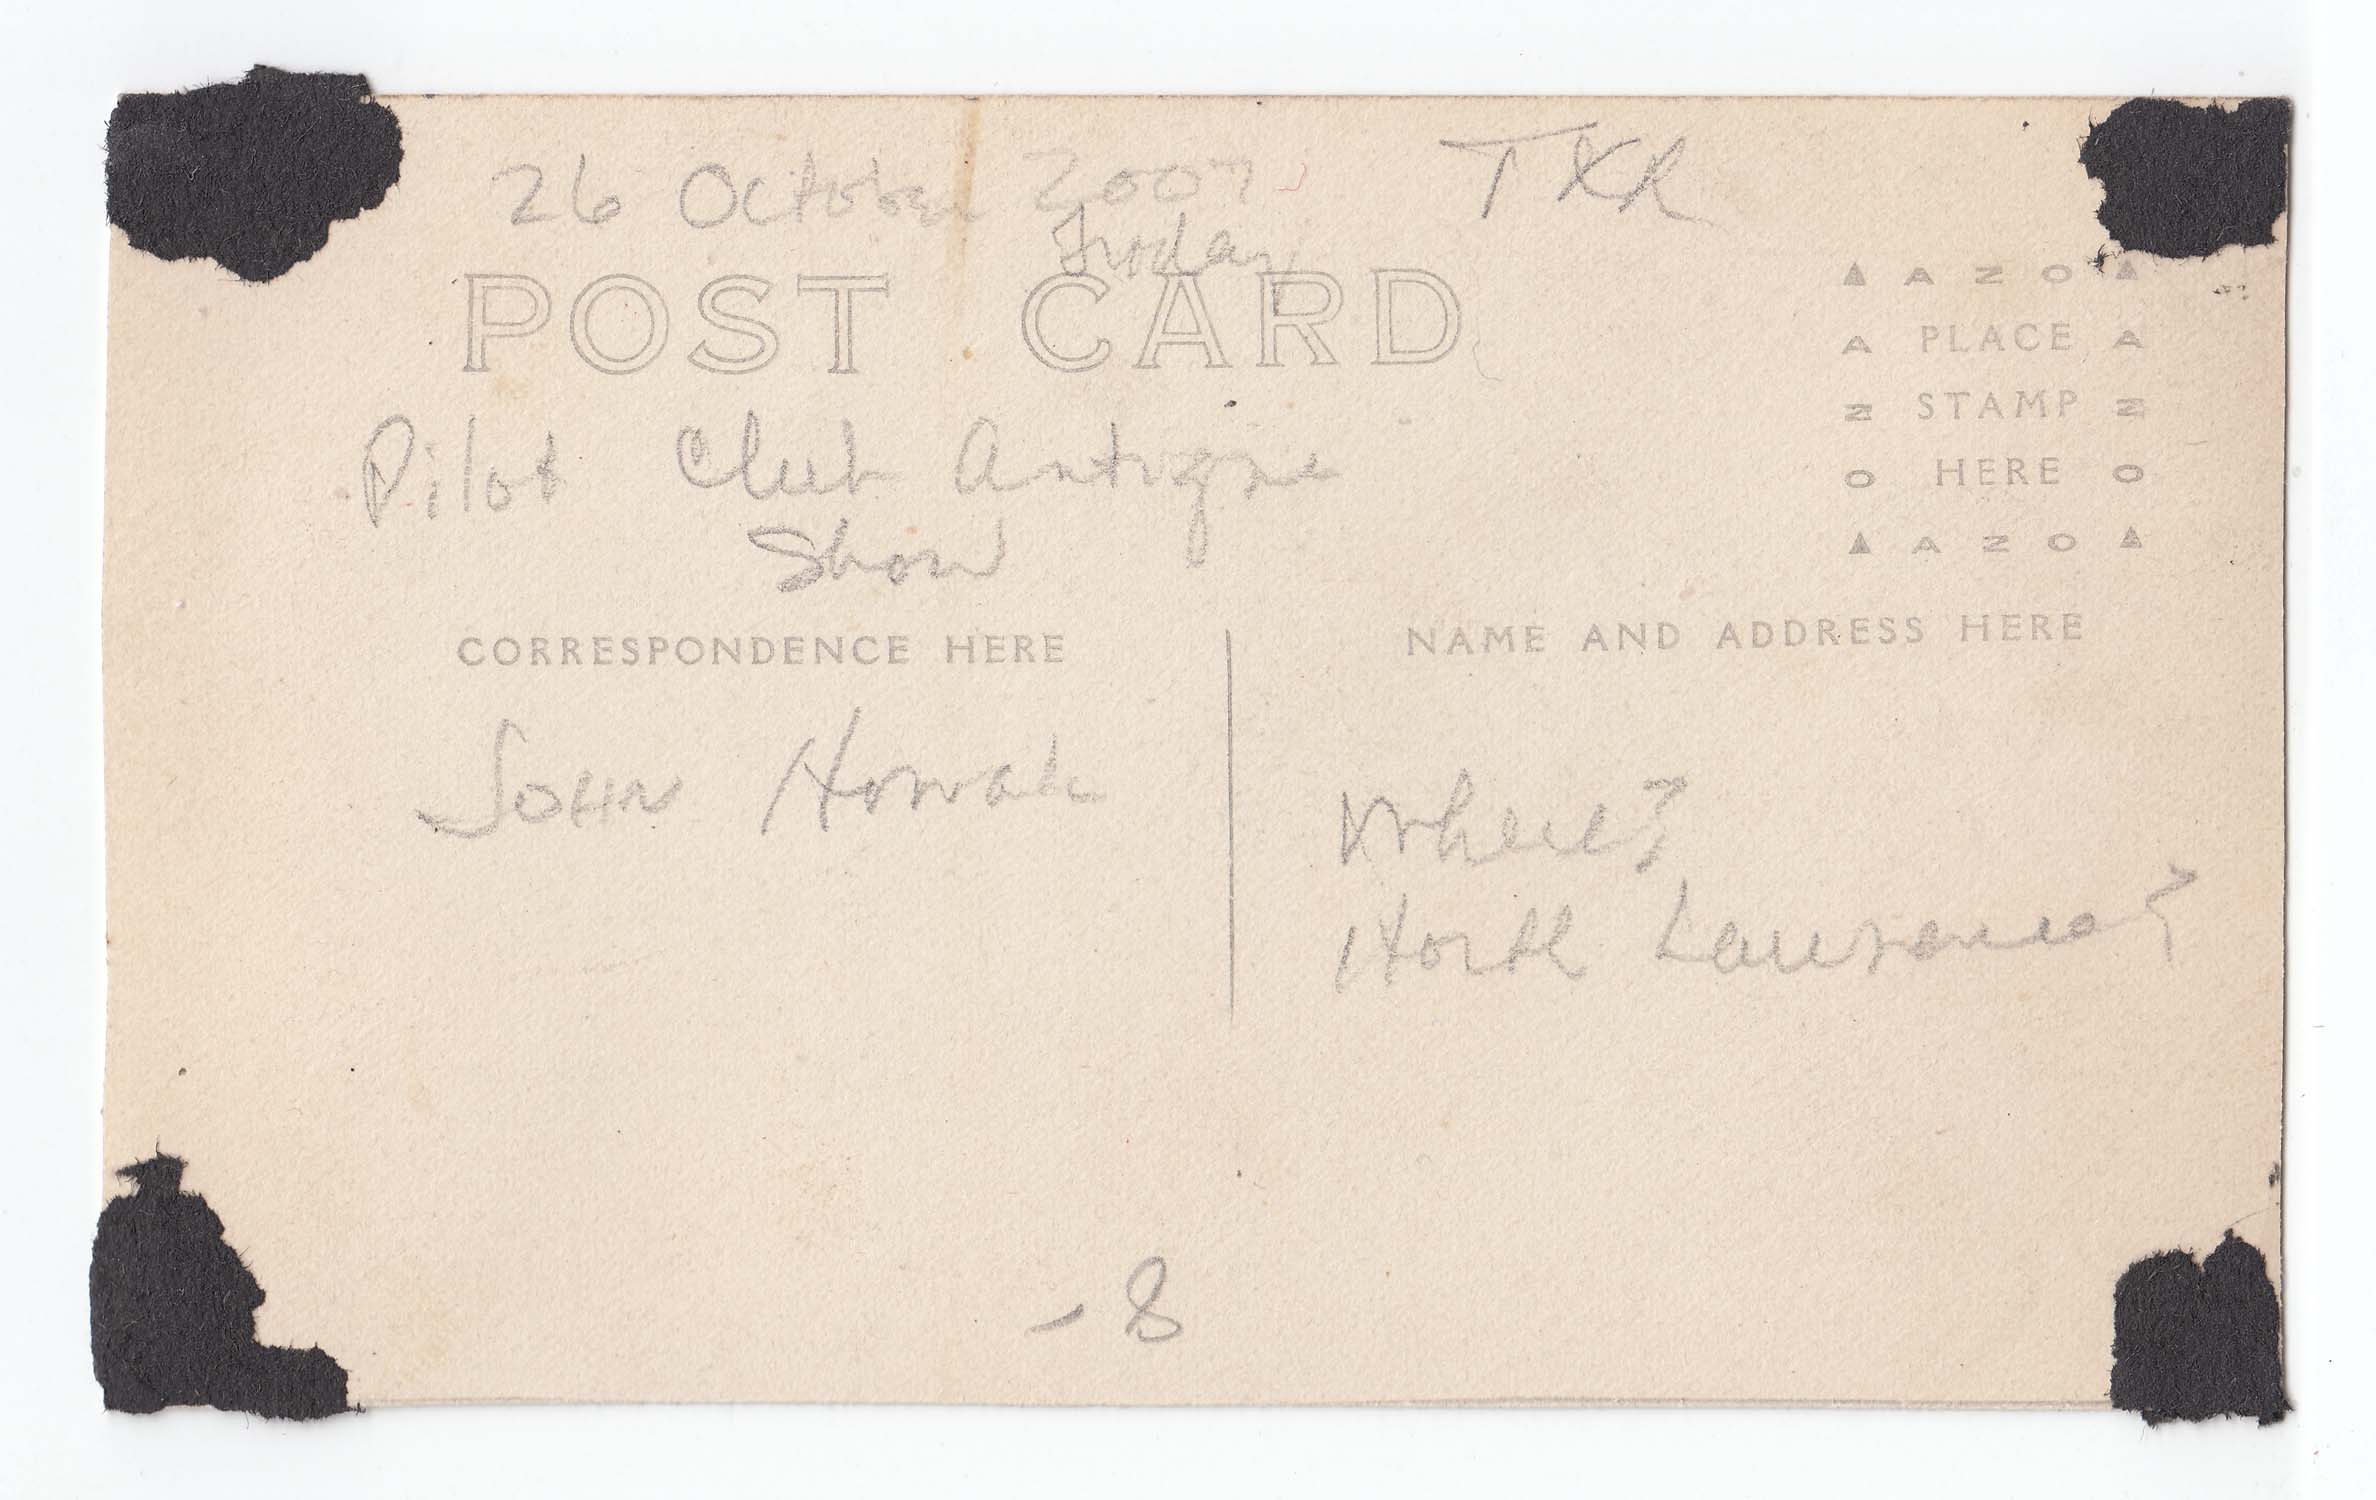 26 October 2007 TXR
Friday
POST CARD
AZO
A PLACE A
N STAMP N
O HERE O
AZO
Pilot Club Antique
Show
CORRESPONDENCE HERE
NAME AND ADDRESS HERE
JOHN Novak
Where?
North Lawrence?
- 8